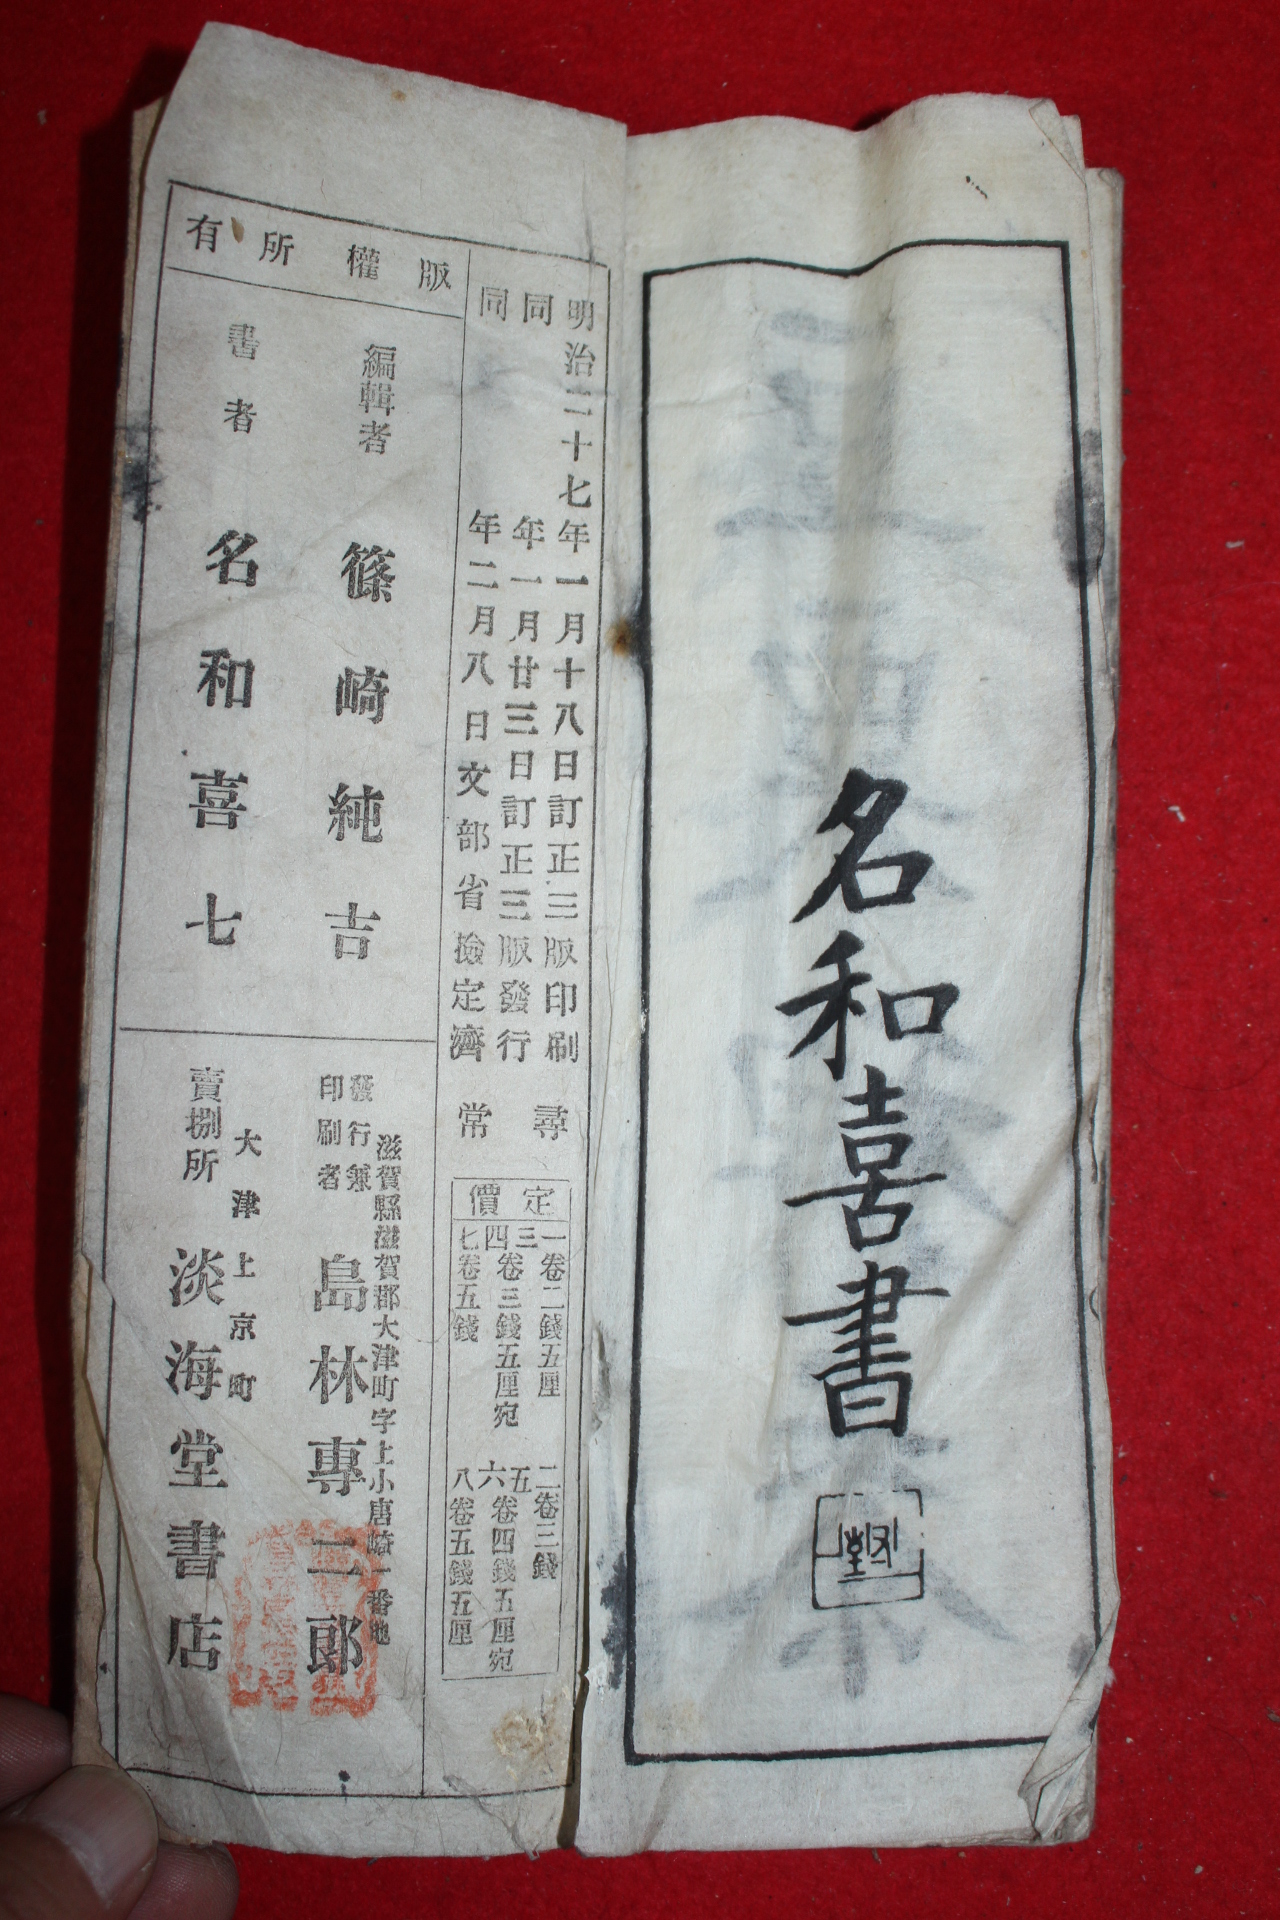 名和喜書
明治二十七年一月十八日訂正三版印刷
同年一月廿三日訂正三版發行
同年二月八日文部省檢定濟
尋常
定價
一三卷二錢五厘
二五卷三錢
四卷三錢五厘宛
六卷四錢五厘宛
七卷五錢
八卷五錢五厘
版權所有
編輯者 篠崎純吉
書者 名和喜七
滋賀縣滋賀郡大津町字上小唐崎一番地
發行兼
印刷者
島林專二郎
大津上京町
賣捌所 淡海堂書店